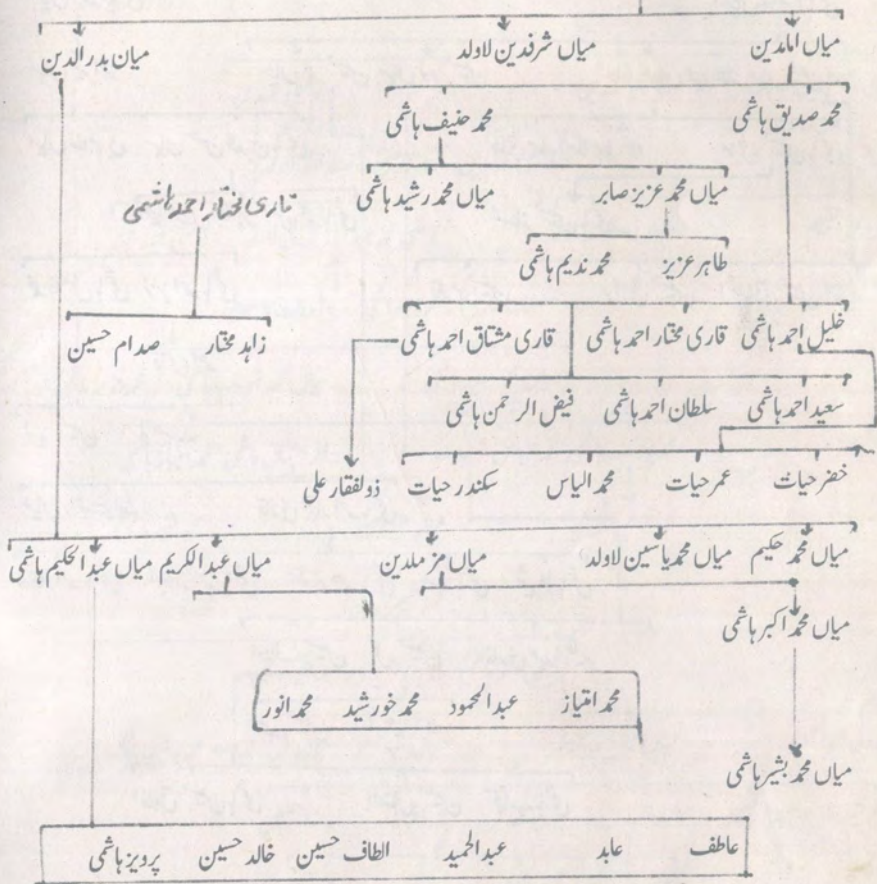 میاں امامدین میاں شرفدین لاولد میان بدرالدین
محمد صدیق ہاشمی محمد حنیف ہاشمی
میاں محمد عزیز صابر میاں محمد رشید ہاشمی
قاری مختار احمد ہاشمی
طاہر عزیز محمد ندیم ہاشمی
خلیل احمد ہاشمی قاری مختار احمد ہاشمی قاری مشتاق احمد ہاشمی
زاہد مختار صدام حسین
سعید احمد ہاشمی سلطان احمد ہاشمی فیض الرحمن ہاشمی
خضر حیات عمر حیات محمد الیاس سکندر حیات ذولفقار علی
میاں محمد حکیم میاں محمد یاسین لاولد میاں مزملدین میاں عبدالکریم میاں عبدالحکیم ہاشمی
میاں محمد اکبر ہاشمی
محمد امتیاز عبدالمحمود محمد خورشید محمد انور
میاں محمد بشیر ہاشمی
عاطف عابد عبدالحمید الطاف حسین خالد حسین پرویز ہاشمی